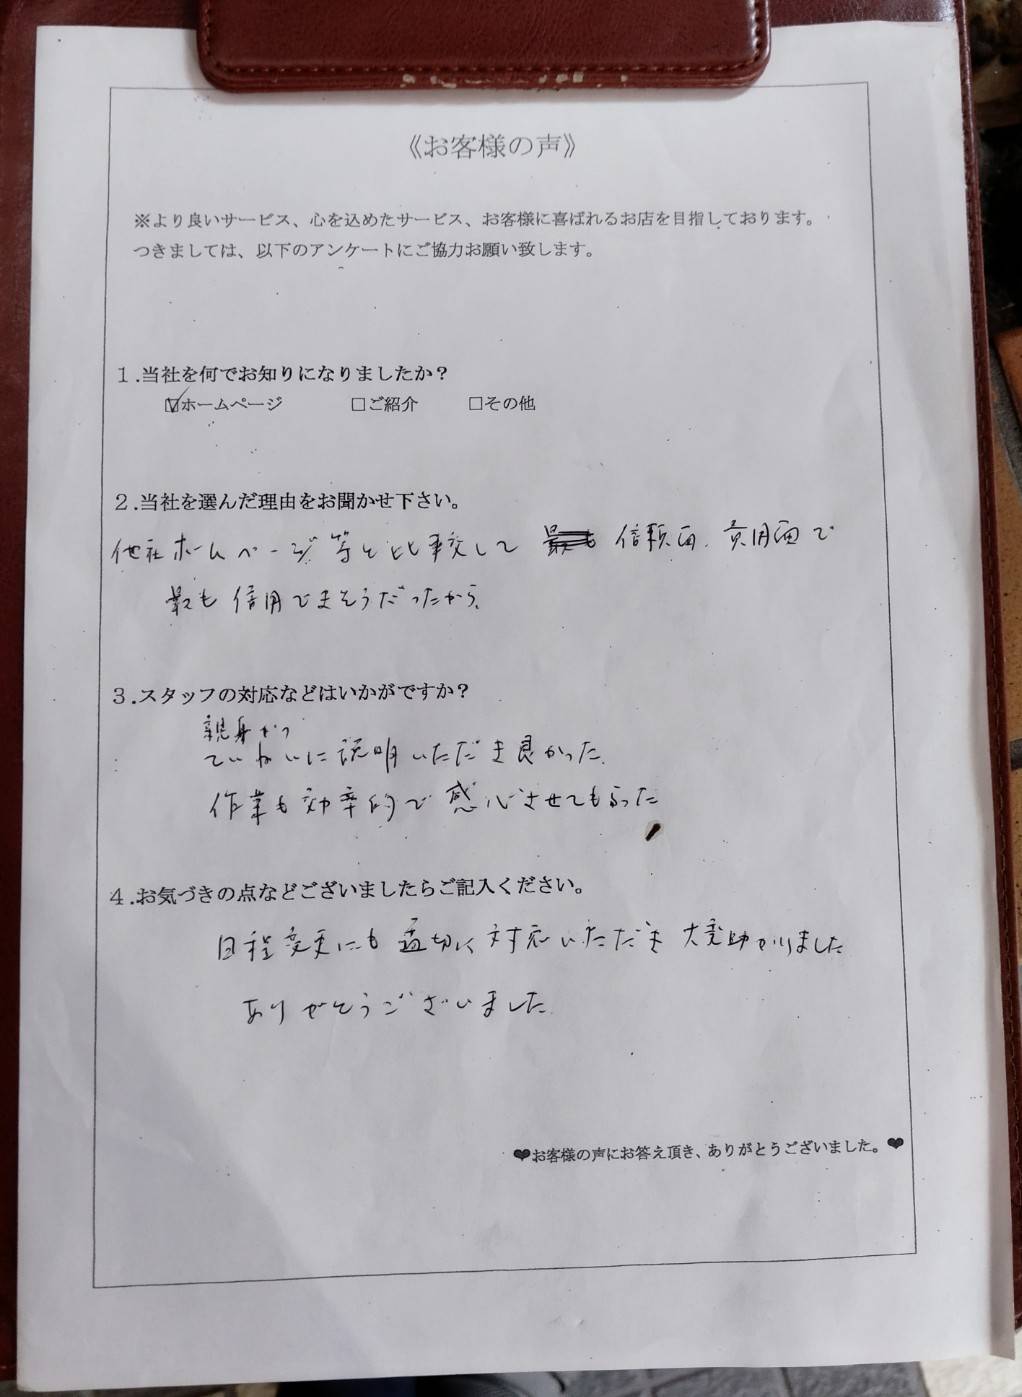 《お客様の声》
※より良いサービス、心を込めたサービス、お客様に喜ばれるお店を目指しております。
つきましては、以下のアンケートにご協力お願い致します。
1.当社を何でお知りになりましたか？
☑ホームページ □ご紹介 □その他
2.当社を選んだ理由をお聞かせ下さい。
他社ホームページ等と比較して 信頼面、費用面で
最も信用できそうだったから。
3.スタッフの対応などはいかがですか？
親身かつ
ていねいに説明いただき良かった。
作業も効率的で感心させてもらった
4.お気づきの点などございましたらご記入ください。
日程変更にも適切に対応いただき大変助かりました
ありがとうございました。
❤お客様の声にお答え頂き、ありがとうございました。❤